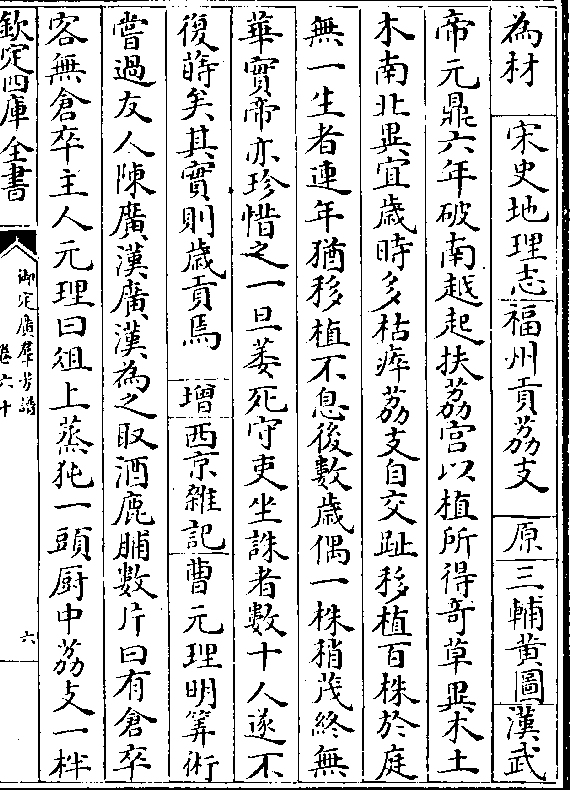 為材 宋史地理志福州貢荔支 原 三輔黄圖漢武
帝元鼎六年破南越起扶荔宫以植所得竒草異木土
木南北異宜歲時多枯瘁荔支自交趾移植百株於庭
無一生者連年猶移植不息後數歲偶一株稍茂終無
華實帝亦珍惜之一旦萎死守吏坐誅者數十人遂不
復蒔矣其實則歲貢焉 增 西京雜記曹元理明筭術
嘗過友人陳廣漢廣漢為之取酒鹿脯數片曰有倉卒
客無倉卒主人元理曰俎上蒸㹠一頭厨中荔支一柈
欽定四庫全書
御定廣羣芳譜
卷六十
六